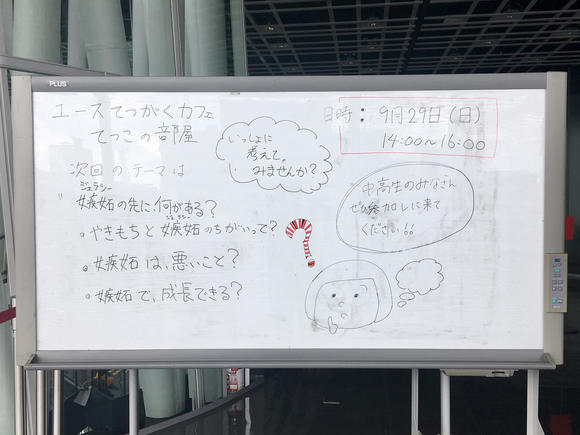 PLUS
ユースてつがくカフェ
てつこの部屋
日時： 9月29日（日）
14:00〜16:00
いっしょに
考えて
みませんか？
次回のテーマは
ジェラシー
"嫉妬の先に、何がある？
ジェラシー
・やきもちと嫉妬のちがいって？
・嫉妬は、悪いこと？
・嫉妬で、成長できる？
中高生のみなさん
ぜひ参加しに来て
ください!!
?